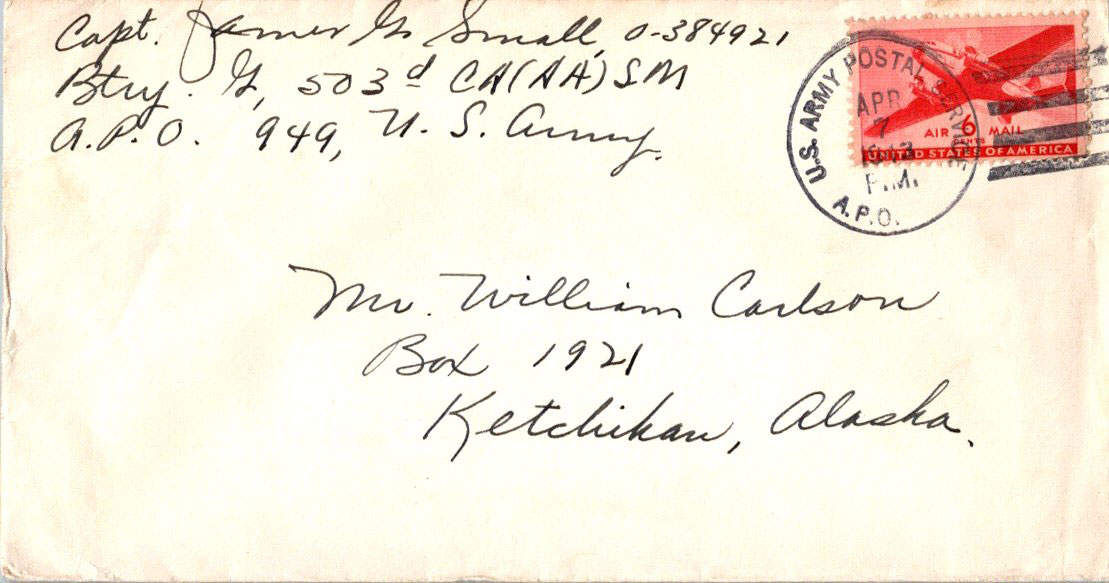 Capt. James G. Small, O-384921
Btry. G, 503d CA(AA)SM
A.P.O. 949, U. S. Army.
U.S. ARMY POSTAL SERVICE
APR
7
P.M.
A.P.O.
AIR 6 CENTS MAIL
UNITED STATES OF AMERICA
Mr. William Carlson
Box 1921
Ketchikan, Alaska.